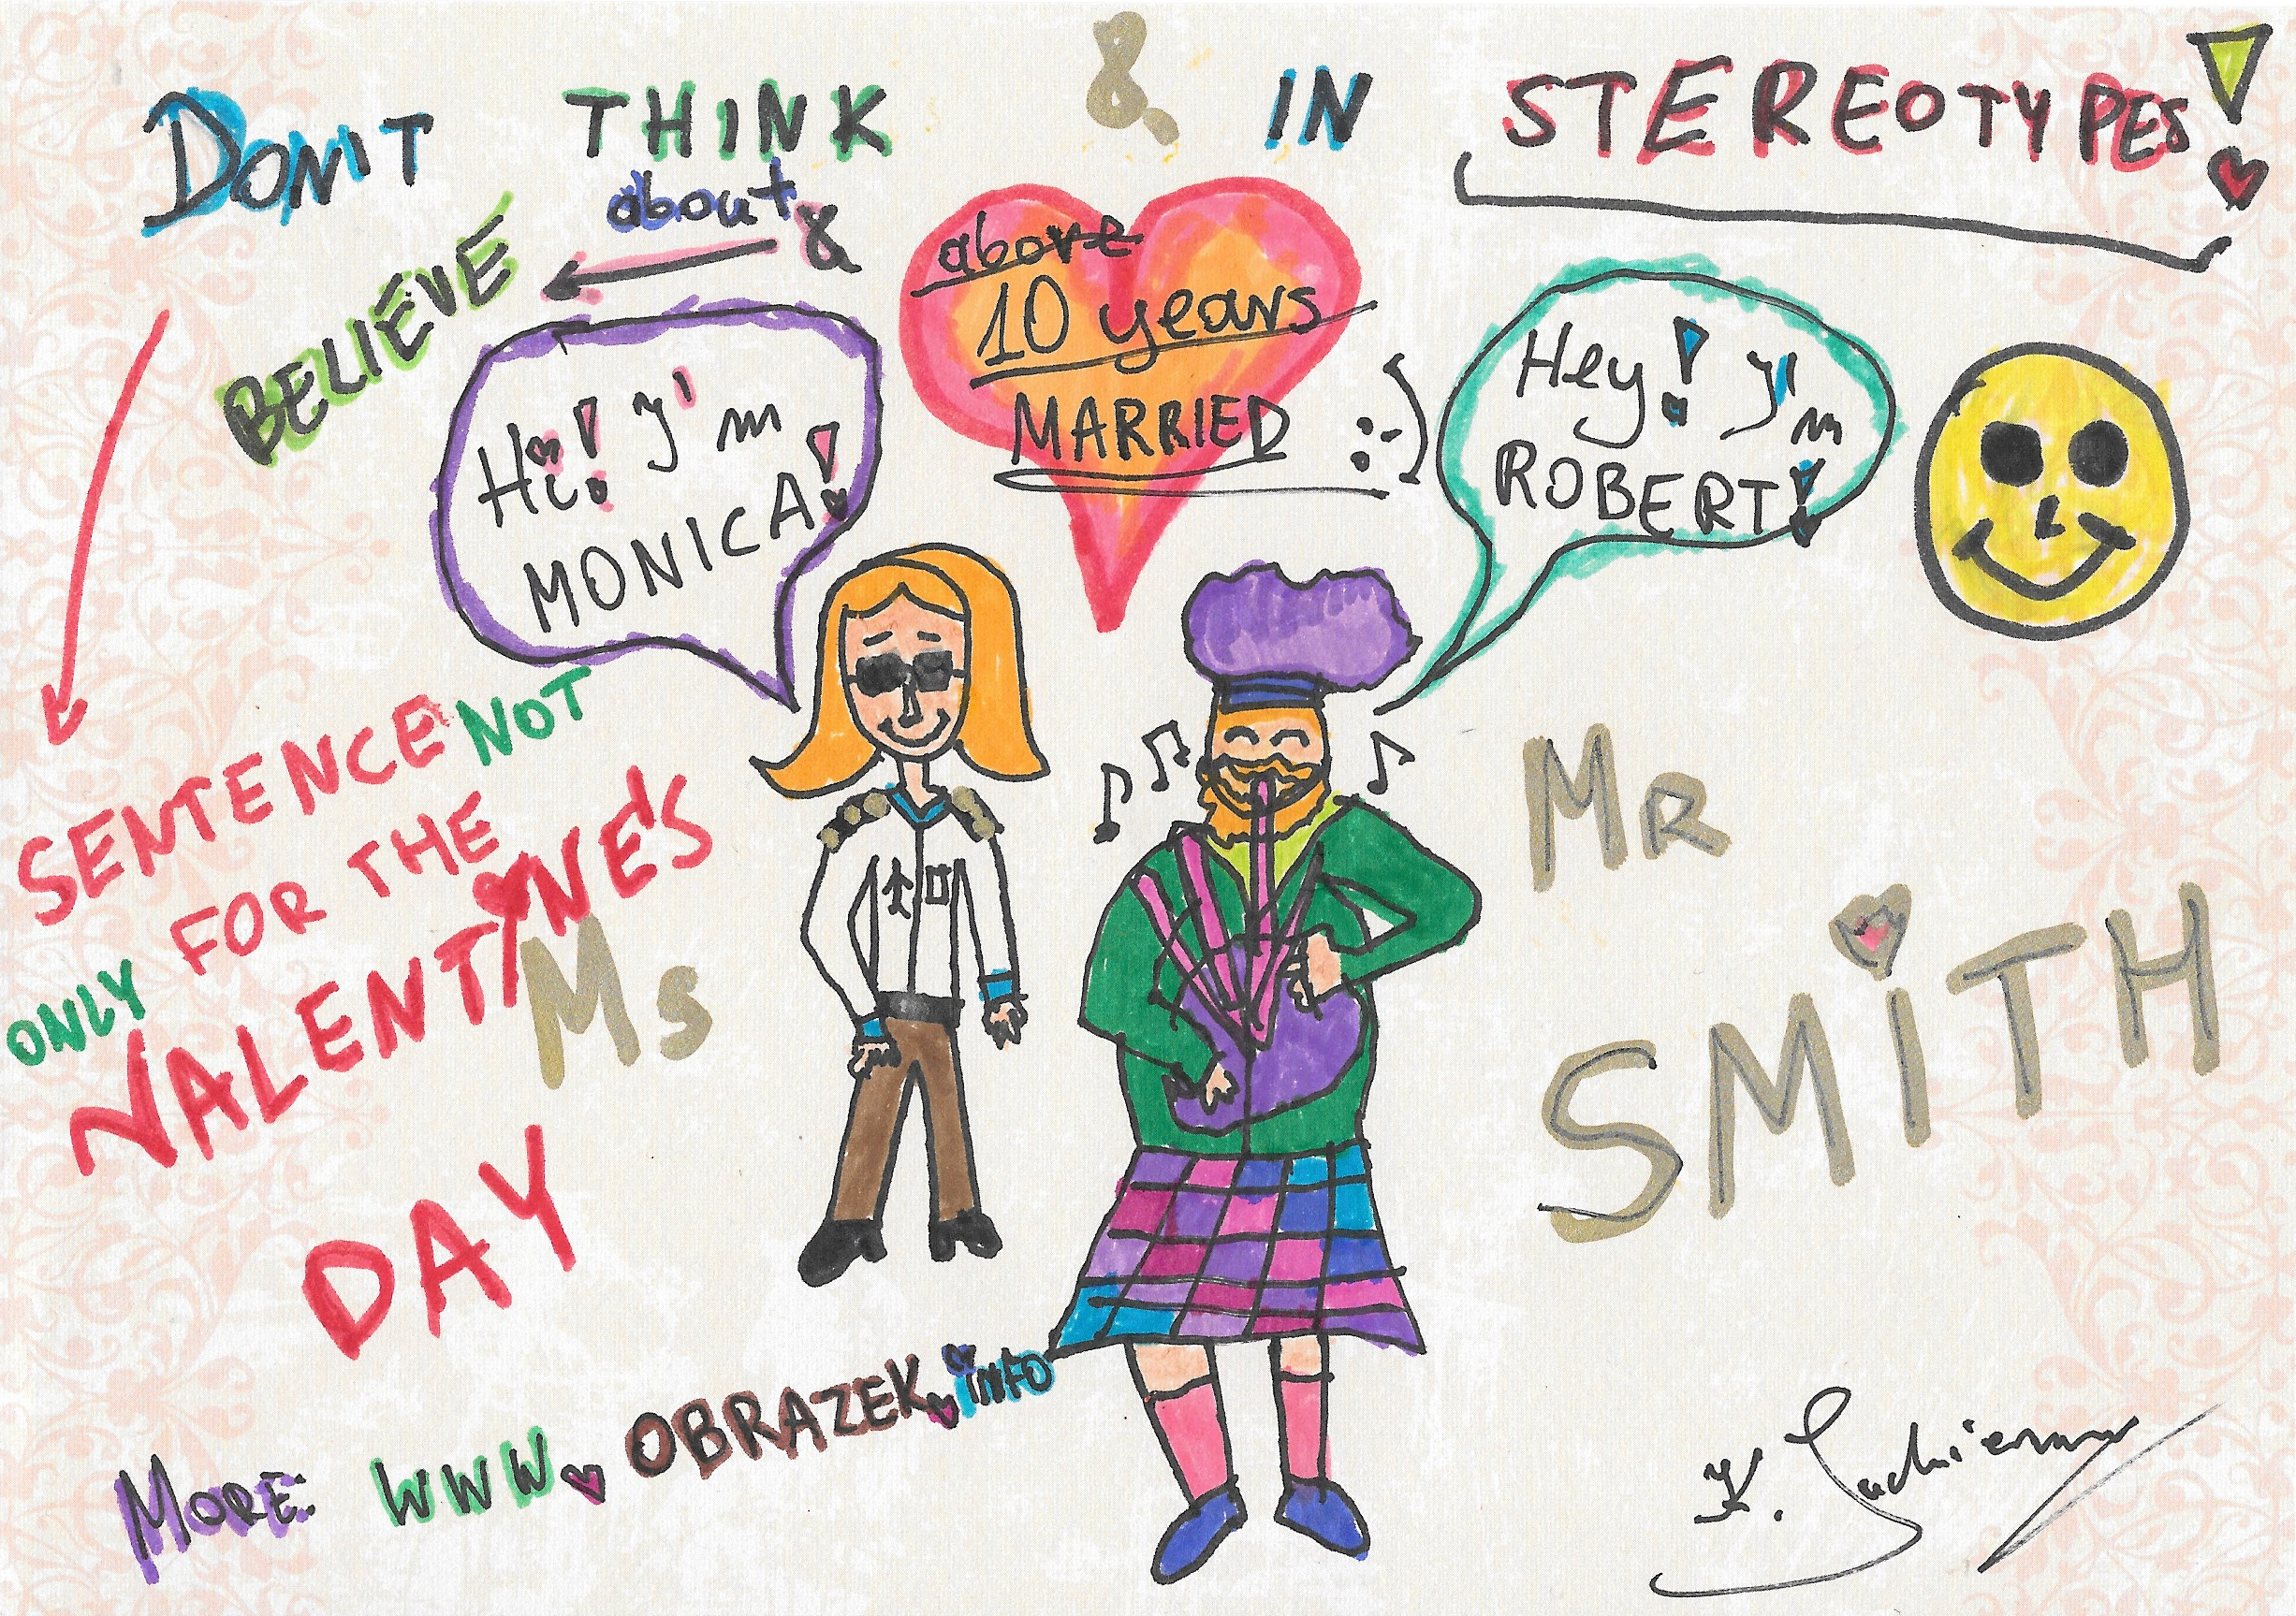 DON'T THINK & IN STEREOTYPES!
about &
BELIEVE
above
10 years
MARRIED :-)
Hi! I'm
MONICA!
Hey! I'm
ROBERT!
SENTENCE NOT
ONLY FOR THE
VALENTINE'S
DAY
Ms
Mr
SMiTH
MORE: WWW.OBRAZEK.iNFO
K.